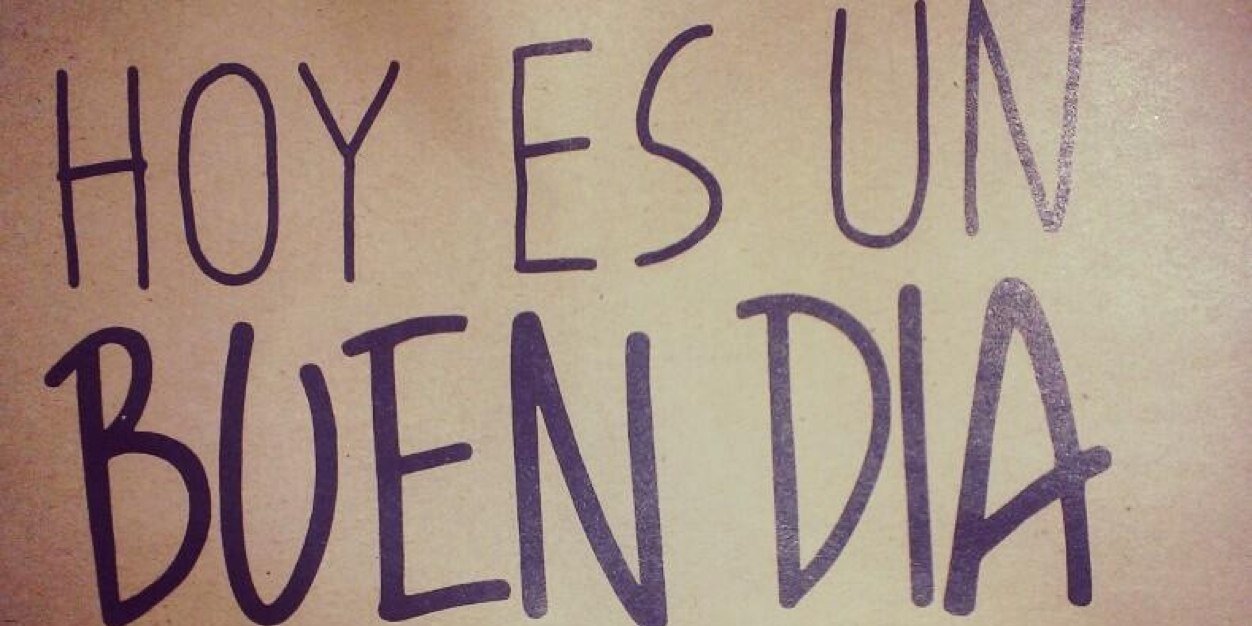 HOY ES UN
BUEN DIA